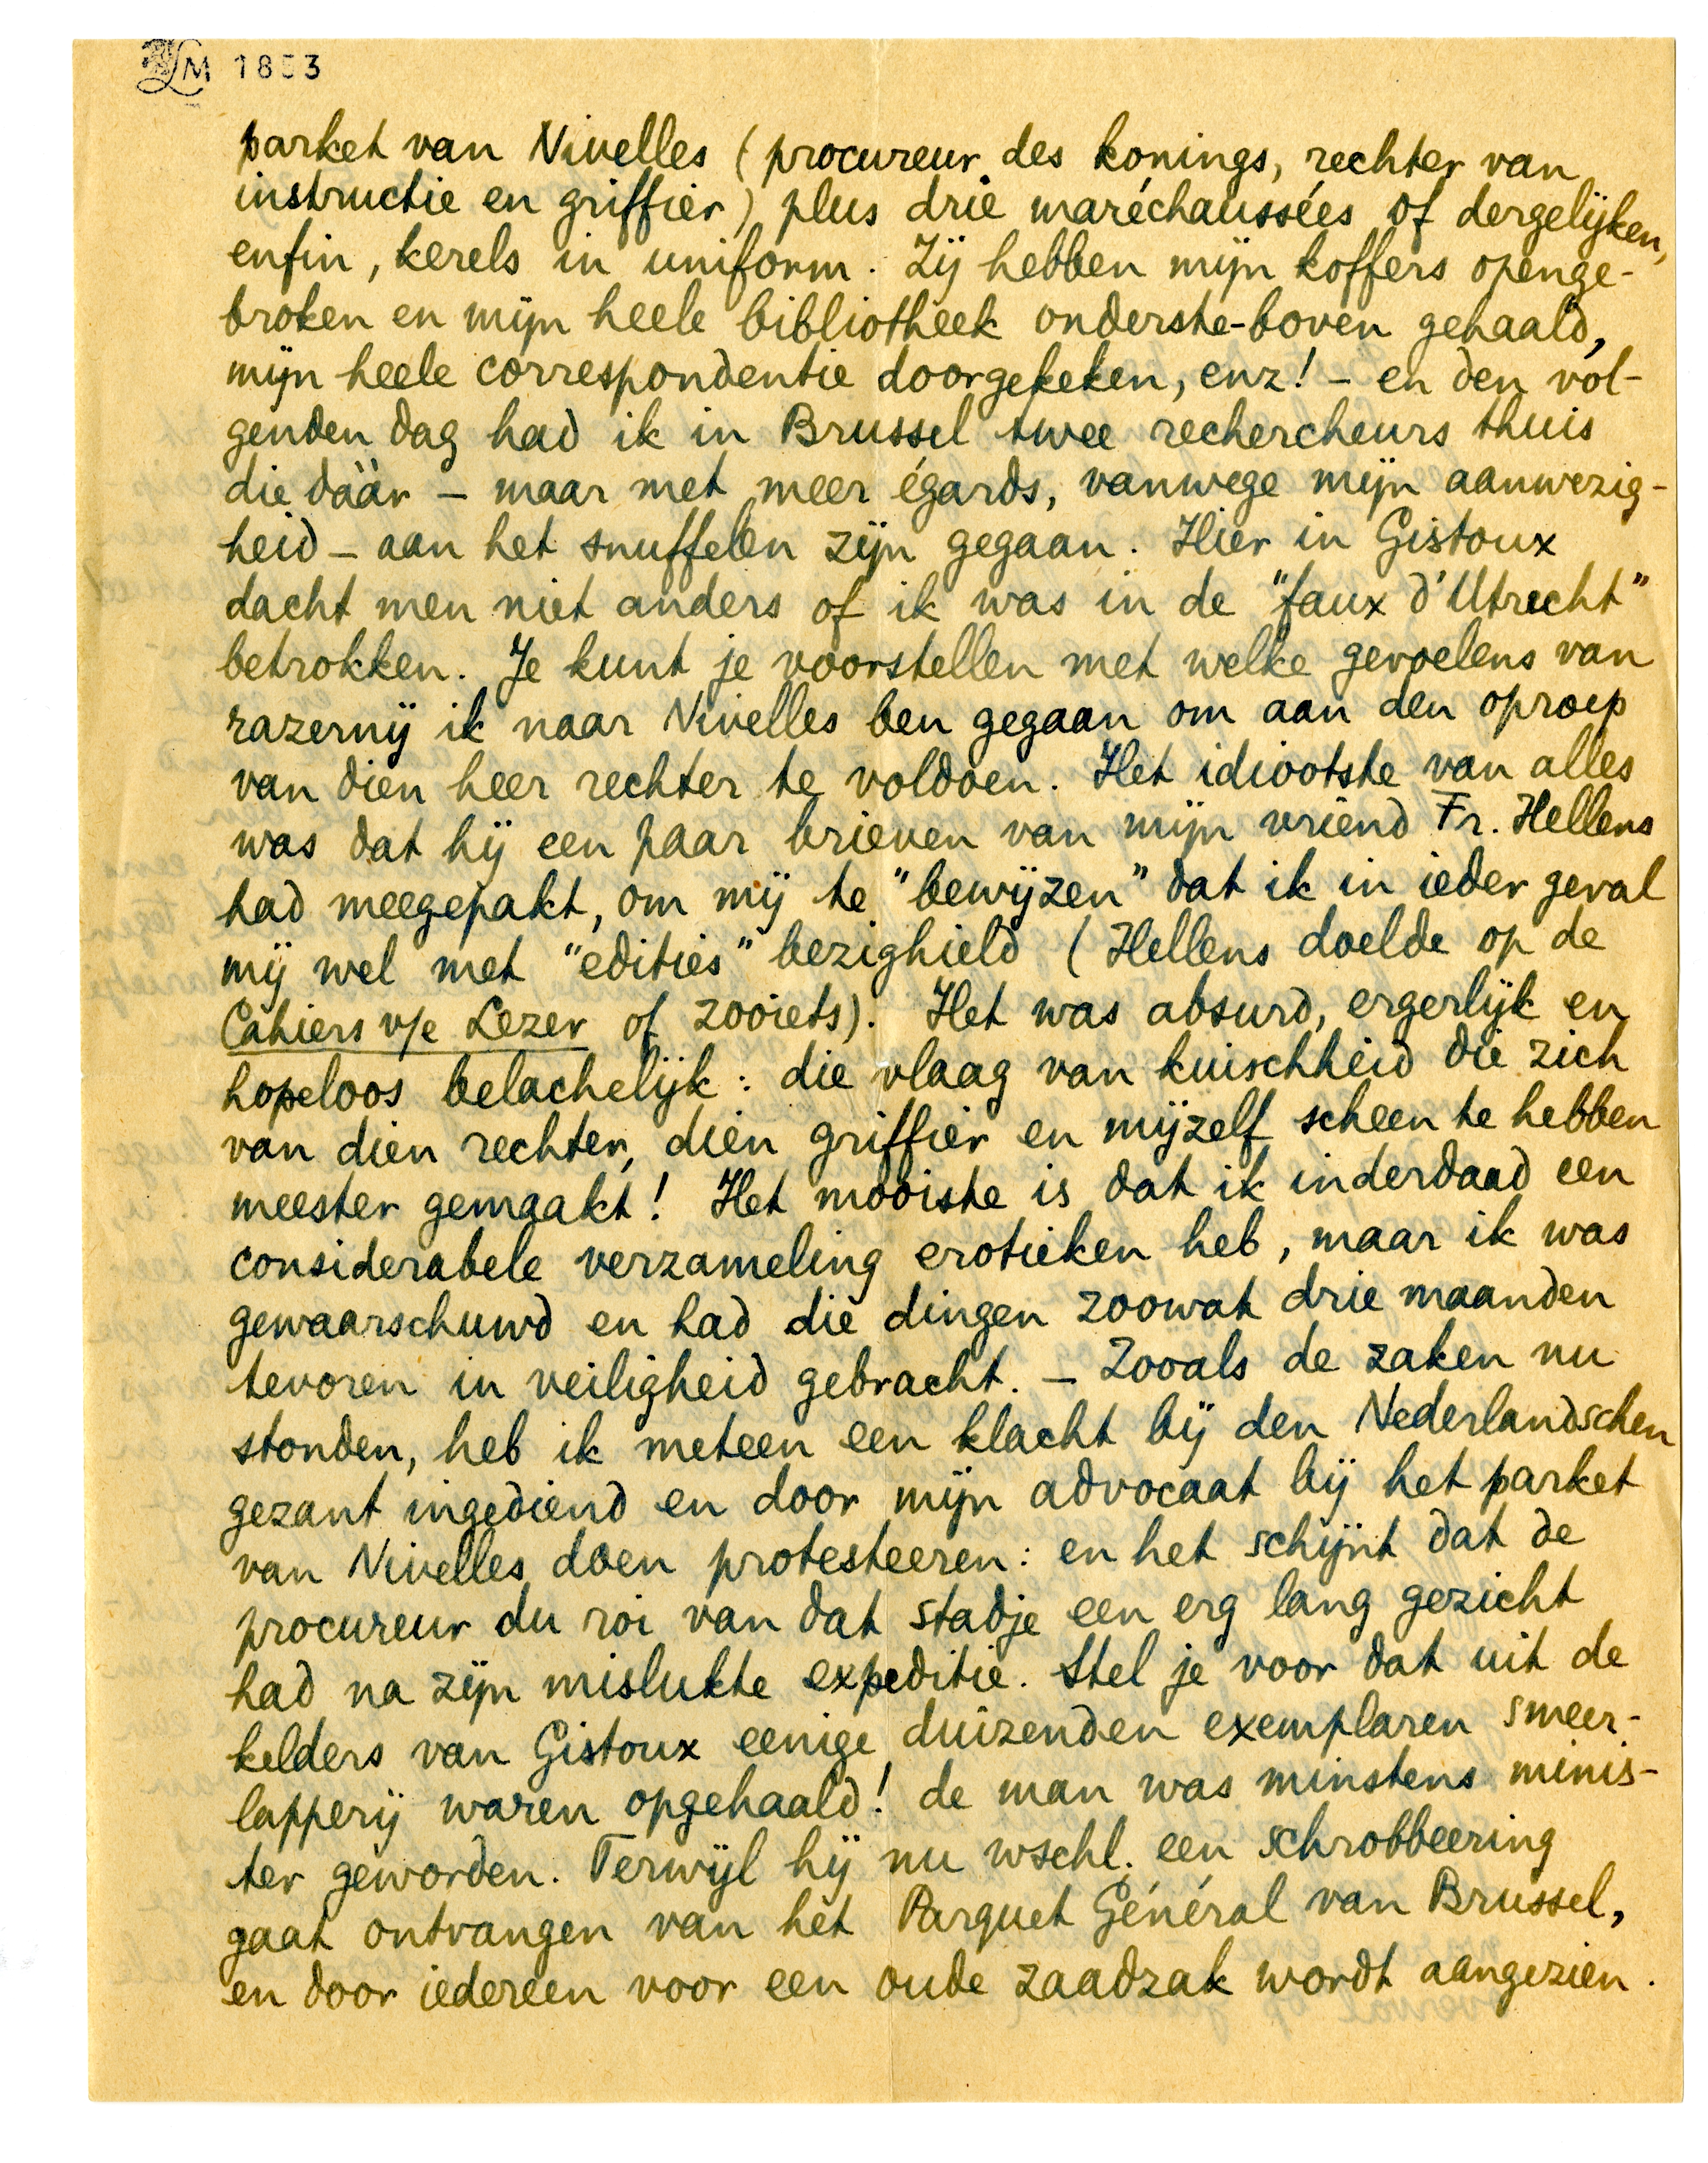 LM 1853
parket van Nivelles (procureur des konings, rechter van
instructie en griffier) plus drie maréchaussées of dergelijken,
enfin, kerels in uniform. Zij hebben mijn koffers openge-
broken en mijn heele bibliotheek onderste-boven gehaald,
mijn heele correspondentie doorgekeken, enz! – en den vol-
genden dag had ik in Brussel twee rechercheurs thuis
die dààr – maar met meer égards, vanwege mijn aanwezig-
heid – aan het snuffelen zijn gegaan. Hier in Gistoux
dacht men niet anders of ik was in de "faux d'Utrecht"
betrokken. Je kunt je voorstellen met welke gevoelens van
razernij ik naar Nivelles ben gegaan om aan den oproep
van dien heer rechter te voldoen. Het idiootste van alles
was dat hij een paar brieven van mijn vriend Fr. Hellens
had meegepakt, om mij te "bewijzen" dat ik in ieder geval
mij wel met "edities" bezighield (Hellens doelde op de
Cahiers v/e Lezer of zooiets). Het was absurd, ergerlijk en
hopeloos belachelijk: die vlaag van kuischheid die zich
van dien rechter, dien griffier en mijzelf scheen te hebben
meester gemaakt! Het mooiste is dat ik inderdaad een
considerabele verzameling erotieken heb, maar ik was
gewaarschuwd en had die dingen zoowat drie maanden
tevoren in veiligheid gebracht. – Zooals de zaken nu
stonden, heb ik meteen een klacht bij den Nederlandschen
gezant ingediend en door mijn advocaat bij het parket
van Nivelles doen protesteeren: en het schijnt dat de
procureur du roi van dat stadje een erg lang gezicht
had na zijn mislukte expeditie. Stel je voor dat uit de
kelders van Gistoux eenige duizenden exemplaren smeer-
lapperij waren opgehaald! de man was minstens minis-
ter geworden. Terwijl hij nu wschl. een schrobbeering
gaat ontvangen van het Parquet Général van Brussel,
en door iedereen voor een oude zaadzak wordt aangezien.